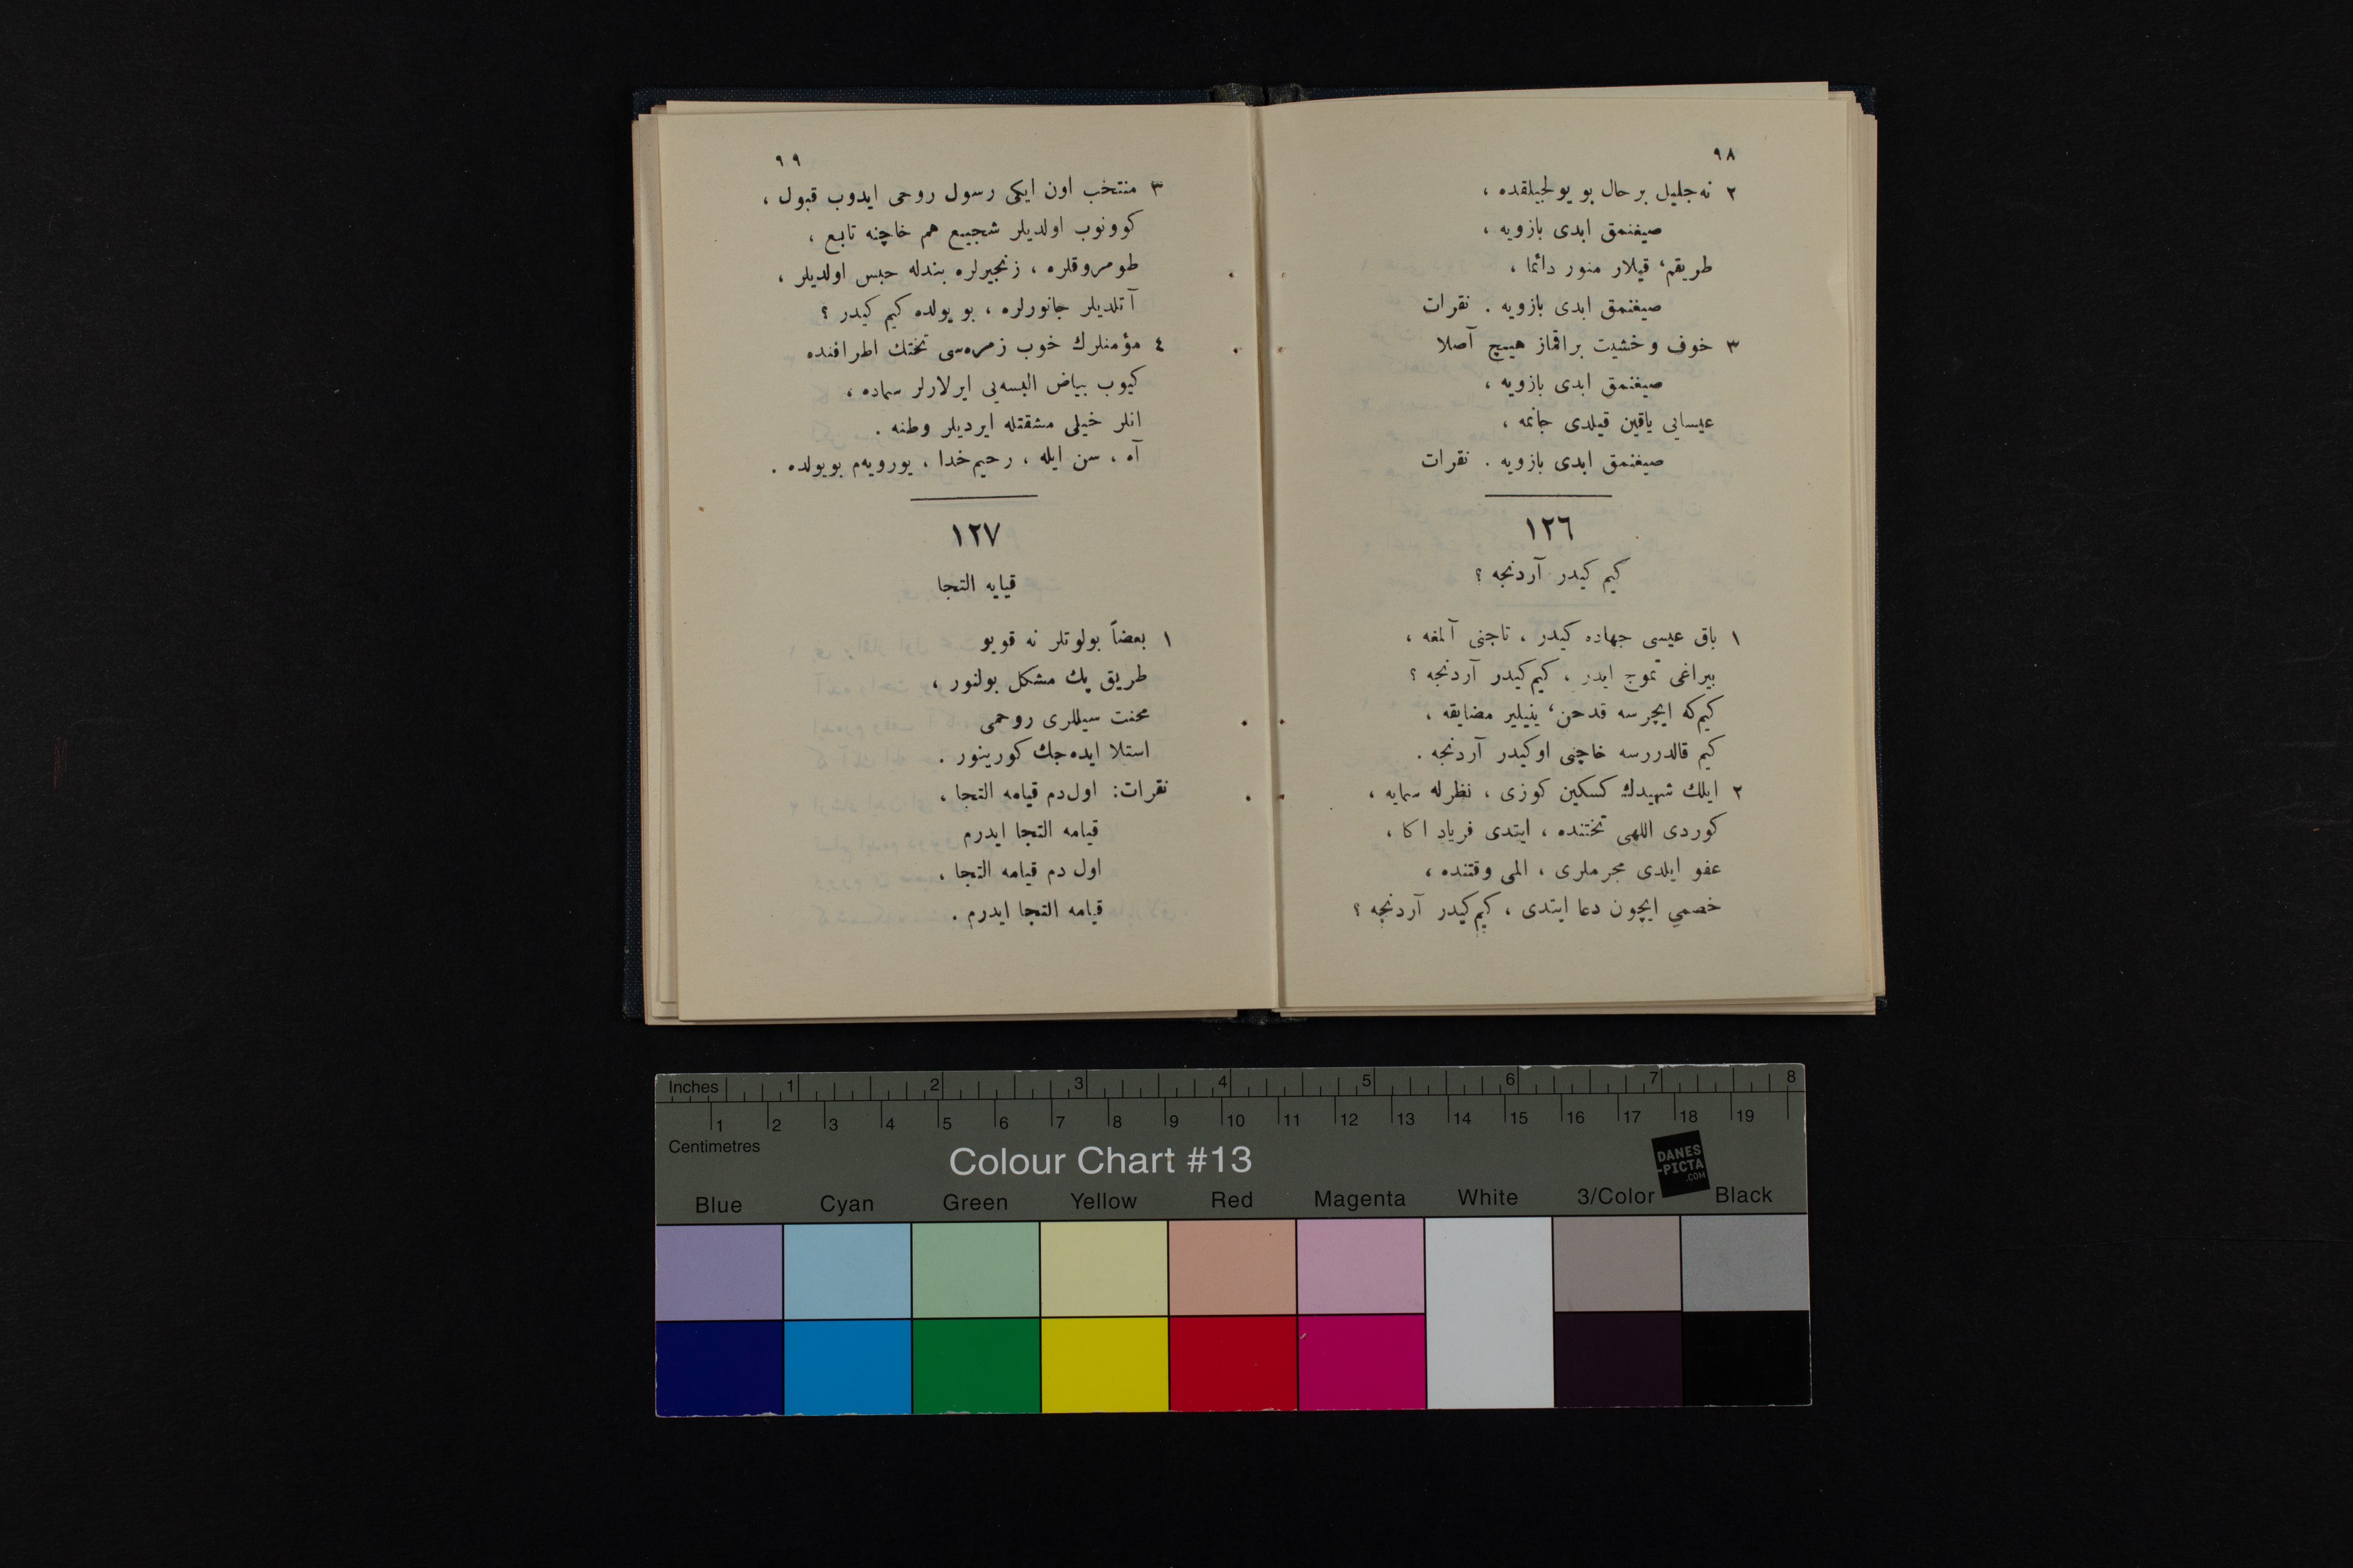 ٩٨
٢ نه جليل بر حال بو يولجيلقده ،
صيغنمق ابدى بازويه ،
طريقم، قيلار منور دائما ،
صيغنمق ابدى بازويه . نقرات
٣ خوف و خشيت براقماز هيچ آصلا
صيغنمق ابدى بازويه ،
عيسايى ياقين قيلدى جانمه ،
صيغنمق ابدى بازويه . نقرات
١٢٦
كيم كيدر آردنجه ؟
١ باق عيسى جهاده كيدر ، تاجنى آلمغه ،
بيراغى تموج ايدر ، كيم كيدر آردنجه ؟
كيم كه ايچرسه قدحن، ينيلير مضايقه ،
كيم قالدررسه خاچنى او كيدر آردنجه .
٢ ايلك شهيدك كسكين كوزى ، نظرله سمايه ،
كوردى اللهى تختنده ، ايتدى فرياد اكا ،
عفو ايلدى مجرملرى ، المى وقتنده ،
خصمي ايچون دعا ايتدى ، كيم كيدر آردنجه ؟
٩٩
٣ منتخب اون ايكى رسول روحى ايدوب قبول ،
كوونوب اولديلر شجيع هم خاچنه تابع ،
طومروقلره ، زنجيرلره بندله حبس اولديلر ،
آتلديلر جانورلره ، بو يولده كيم كيدر ؟
٤ مؤمنلرك خوب زمره‌سى تختك اطرافنده
كيوب بياض البسه‌يى ايرلارلر سماده ،
انلر خيلى مشقتله ايرديلر وطنه .
آه ، سن ايله ، رحيم خدا ، يورويه‌م بو يولده .
١٢٧
قيايه التجا
١ بعضاً بولوتلر نه قويو
طريق پك مشكل بولنور ،
محنت سيللرى روحمى
استلا ايده‌جك كورينور .
نقرات: اول دم قيامه التجا ،
قيامه التجا ايدرم
اول دم قيامه التجا ،
قيامه التجا ايدرم .
Inches 1 2 3 4 5 6 7 8
1 2 3 4 5 6 7 8 9 10 11 12 13 14 15 16 17 18 19
Centimetres
Colour Chart #13
DANES
-PICTA
.COM
Blue Cyan Green Yellow Red Magenta White 3/Color Black